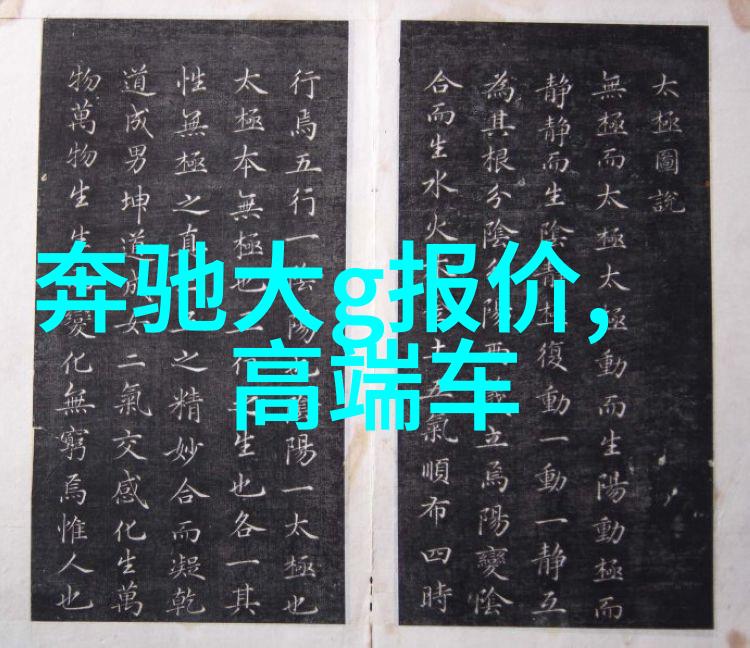 奔驰大g报价,
高端车
太極圖說
無極而太極太極動而生陽動極而
静静而生陰静極復動一動一静互
為其根分陰陽立焉陽變陰
合而生水火土五氣順布四時
行焉五行一陰陽也陰陽一太極也
太極本無極也行生也各一其
性無極之真之精妙合而凝乾
道成男坤道成女二氣交感化生萬
物萬物生生變化無窮焉惟人也